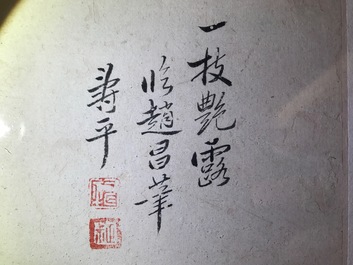 一枝艷露
臨趙昌筆
壽平